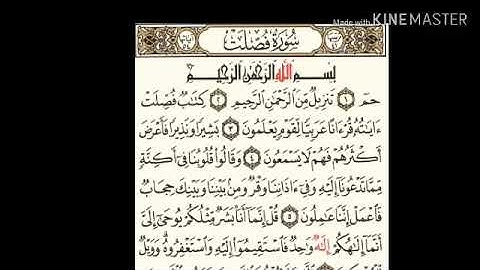 Made with KINEMASTER
سُورَةُ فُصِّلَتْ
بِسْمِ اللَّهِ الرَّحْمَٰنِ الرَّحِيمِ
حمٓ ١ تَنزِيلٌ مِّنَ الرَّحْمَٰنِ الرَّحِيمِ ٢ كِتَٰبٌ فُصِّلَتْ
ءَايَٰتُهُۥ قُرْءَانًا عَرَبِيًّا لِّقَوْمٍ يَعْلَمُونَ ٣ بَشِيرًا وَنَذِيرًا فَأَعْرَضَ
أَكْثَرُهُمْ فَهُمْ لَا يَسْمَعُونَ ٤ وَقَالُوا۟ قُلُوبُنَا فِىٓ أَكِنَّةٍ
مِّمَّا تَدْعُونَآ إِلَيْهِ وَفِىٓ ءَاذَانِنَا وَقْرٌ وَمِنۢ بَيْنِنَا وَبَيْنِكَ حِجَابٌ
فَٱعْمَلْ إِنَّنَا عَٰمِلُونَ ٥ قُلْ إِنَّمَآ أَنَا۠ بَشَرٌ مِّثْلُكُمْ يُوحَىٰٓ إِلَىَّ
أَنَّمَآ إِلَٰهُكُمْ إِلَٰهٌ وَٰحِدٌ فَٱسْتَقِيمُوٓا۟ إِلَيْهِ وَٱسْتَغْفِرُوهُ وَوَيْلٌ